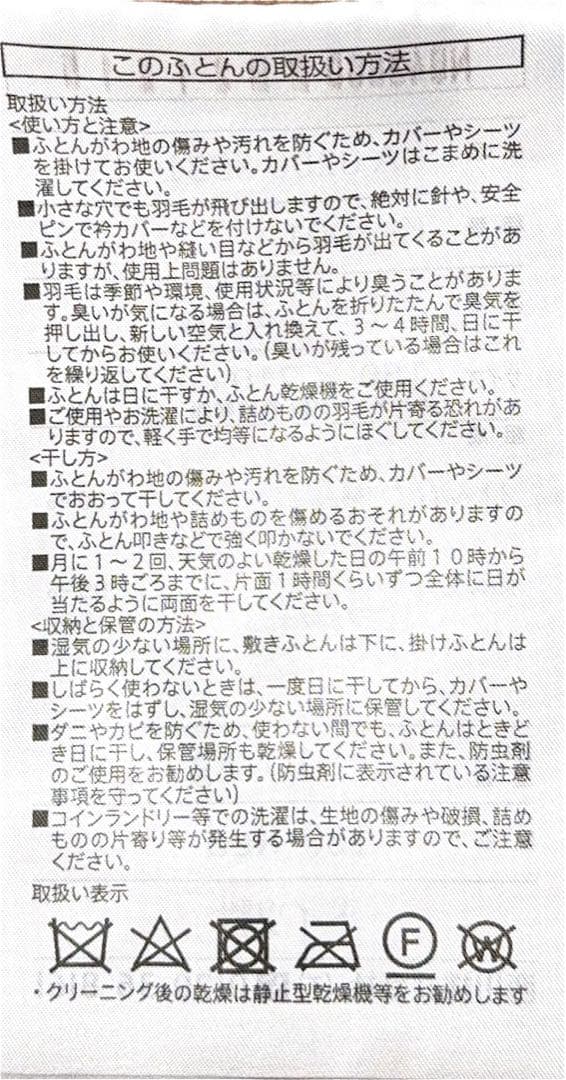 このふとんの取扱い方法
取扱い方法
<使い方と注意>
■ふとんがわ地の傷みや汚れを防ぐため、カバーやシーツ
を掛けてお使いください。カバーやシーツはこまめに洗
濯してください。
■小さな穴でも羽毛が飛び出しますので、絶対に針や、安全
ピンで衿カバーなどを付けないでください。
■ふとんがわ地や縫い目などから羽毛が出てくることがあ
りますが、使用上問題はありません。
■羽毛は季節や環境、使用状況等により臭うことがありま
す。臭いが気になる場合は、ふとんを折りたたんで臭気を
押し出し、新しい空気と入れ換えて、3〜4時間、日に干
してからお使いください。(臭いが残っている場合はこれ
を繰り返してください)
■ふとんは日に干すか、ふとん乾燥機をご使用ください。
■ご使用やお洗濯により、詰めものの羽毛が片寄る恐れがあ
りますので、軽く手で均等になるようにほぐしてください。
<干し方>
■ふとんがわ地の傷みや汚れを防ぐため、カバーやシーツ
でおおって干してください。
■ふとんがわ地や詰めものを傷めるおそれがありますの
で、ふとん叩きなどで強く叩かないでください。
■月に1〜2回、天気のよい乾燥した日の午前10時から
午後3時ごろまでに、片面1時間くらいずつ全体に日が
当たるように両面を干してください。
<収納と保管の方法>
■湿気の少ない場所に、敷きふとんは下に、掛けふとんは
上に収納してください。
■しばらく使わないときは、一度日に干してから、カバーや
シーツをはずし、湿気の少ない場所に保管してください。
■ダニやカビを防ぐため、使わない間でも、ふとんはときど
き日に干し、保管場所も乾燥してください。また、防虫剤
のご使用をお勧めします。(防虫剤に表示されている注意
事項を守ってください)
■コインランドリー等での洗濯は、生地の傷みや破損、詰め
ものの片寄り等が発生する場合がありますので、ご注意
ください。
取扱い表示
F W
・クリーニング後の乾燥は静止型乾燥機等をお勧めします